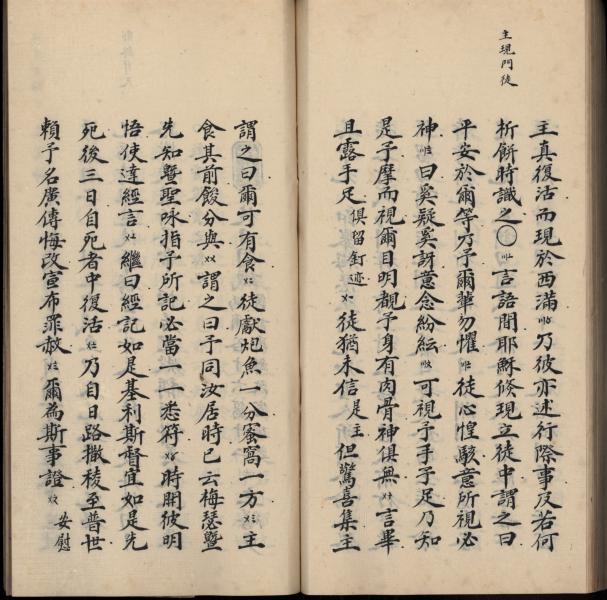 主現門徒
主真復活而現於西滿乃彼亦述行際事及若何
析餅時識之〇言語間耶穌倏現立徒中謂之曰
平安於爾等乃予爾軰勿懼徒心惶駭意所視必
神曰奚疑奚訝意念紛紜可視予手予足乃知
是予摩而視爾目明覩予身有肉骨神俱無言畢
且露手足俱留釘迹徒猶未信是主但驚喜集主
謂之曰爾可有食徒獻炮魚一分蜜窩一方主
食其前餕分與謂之曰予同汝居時已云梅瑟曁
先知曁聖咏指予所記必當一一悉符時開彼明
悟使達經言繼曰經記如是基利斯督宜如是先
死後三日自死者中復活乃自日路撒稜至普世
賴予名廣傳悔改宣布罪赦爾為斯事證安慰